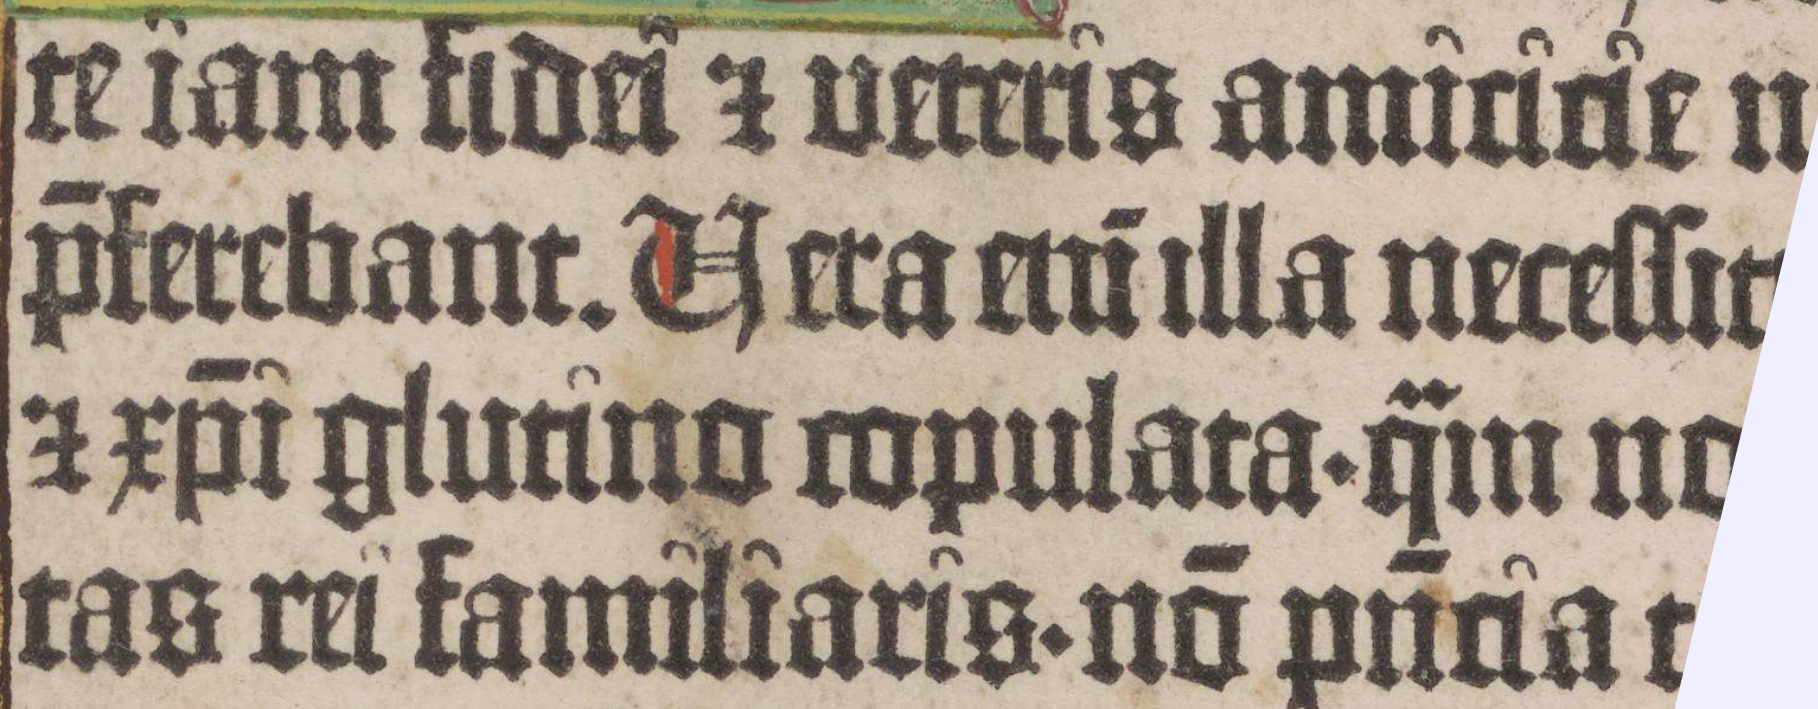 te iam fidei ⁊ veteris amicicie n
p̄ferebant. Vera eni̅ illa necessit
⁊ xp̄i glutino copulata·qͣm no
tas rei familiaris·nō pn̄cia t